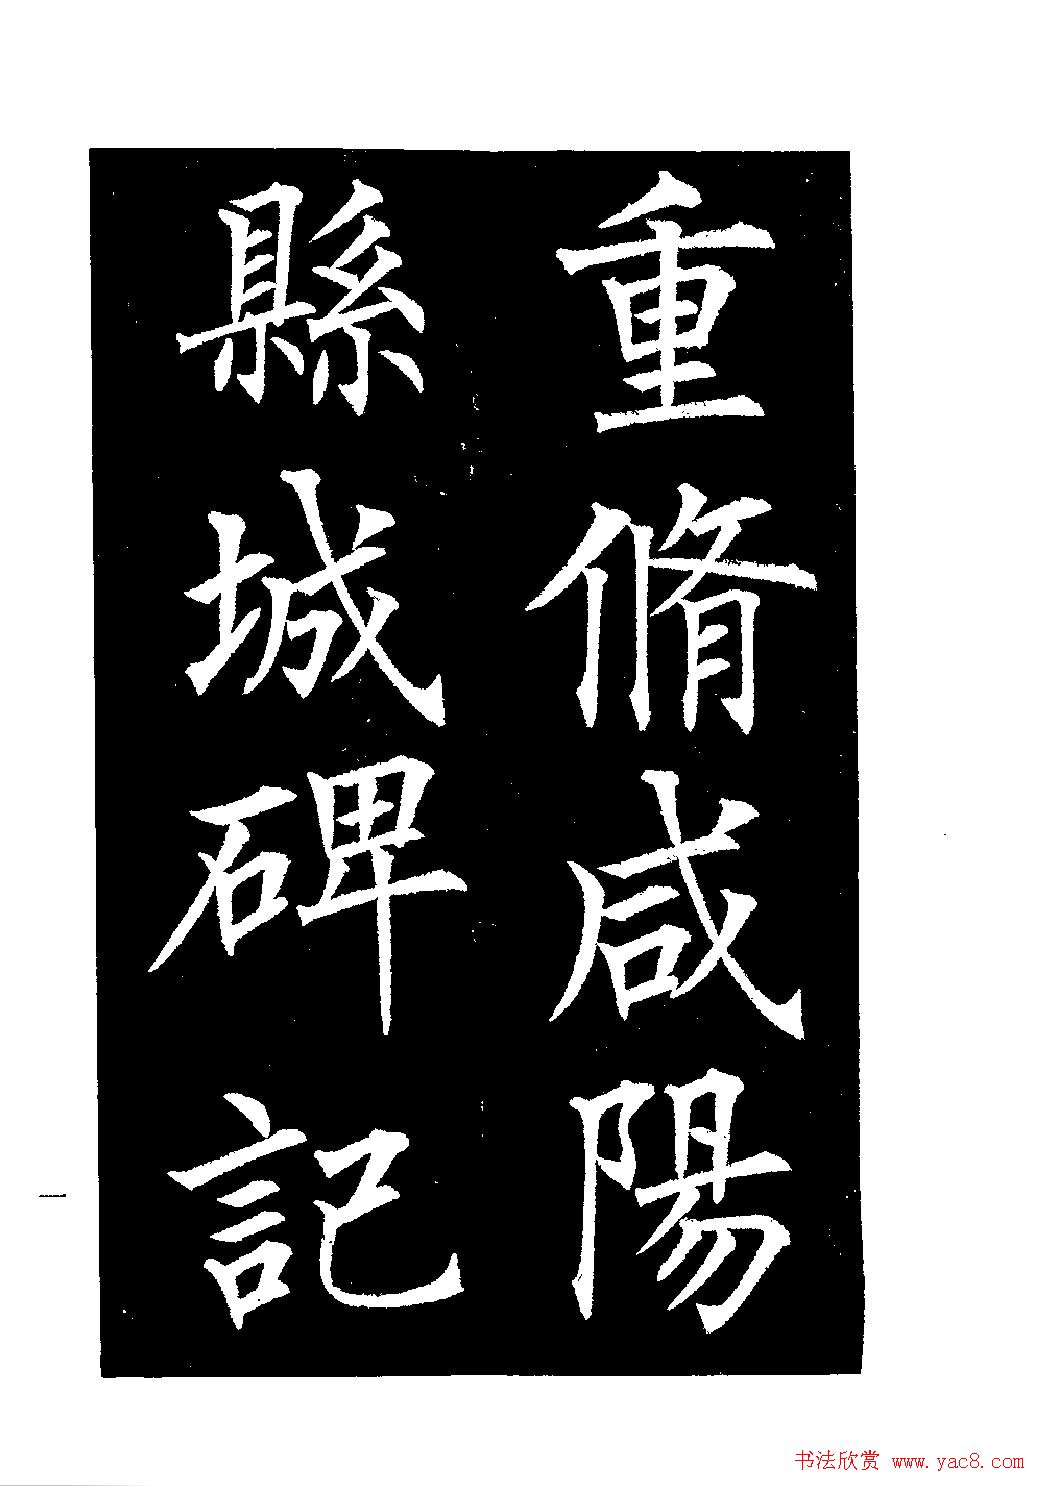 重脩咸陽
縣城碑記
一
书法欣赏 www.yac8.com